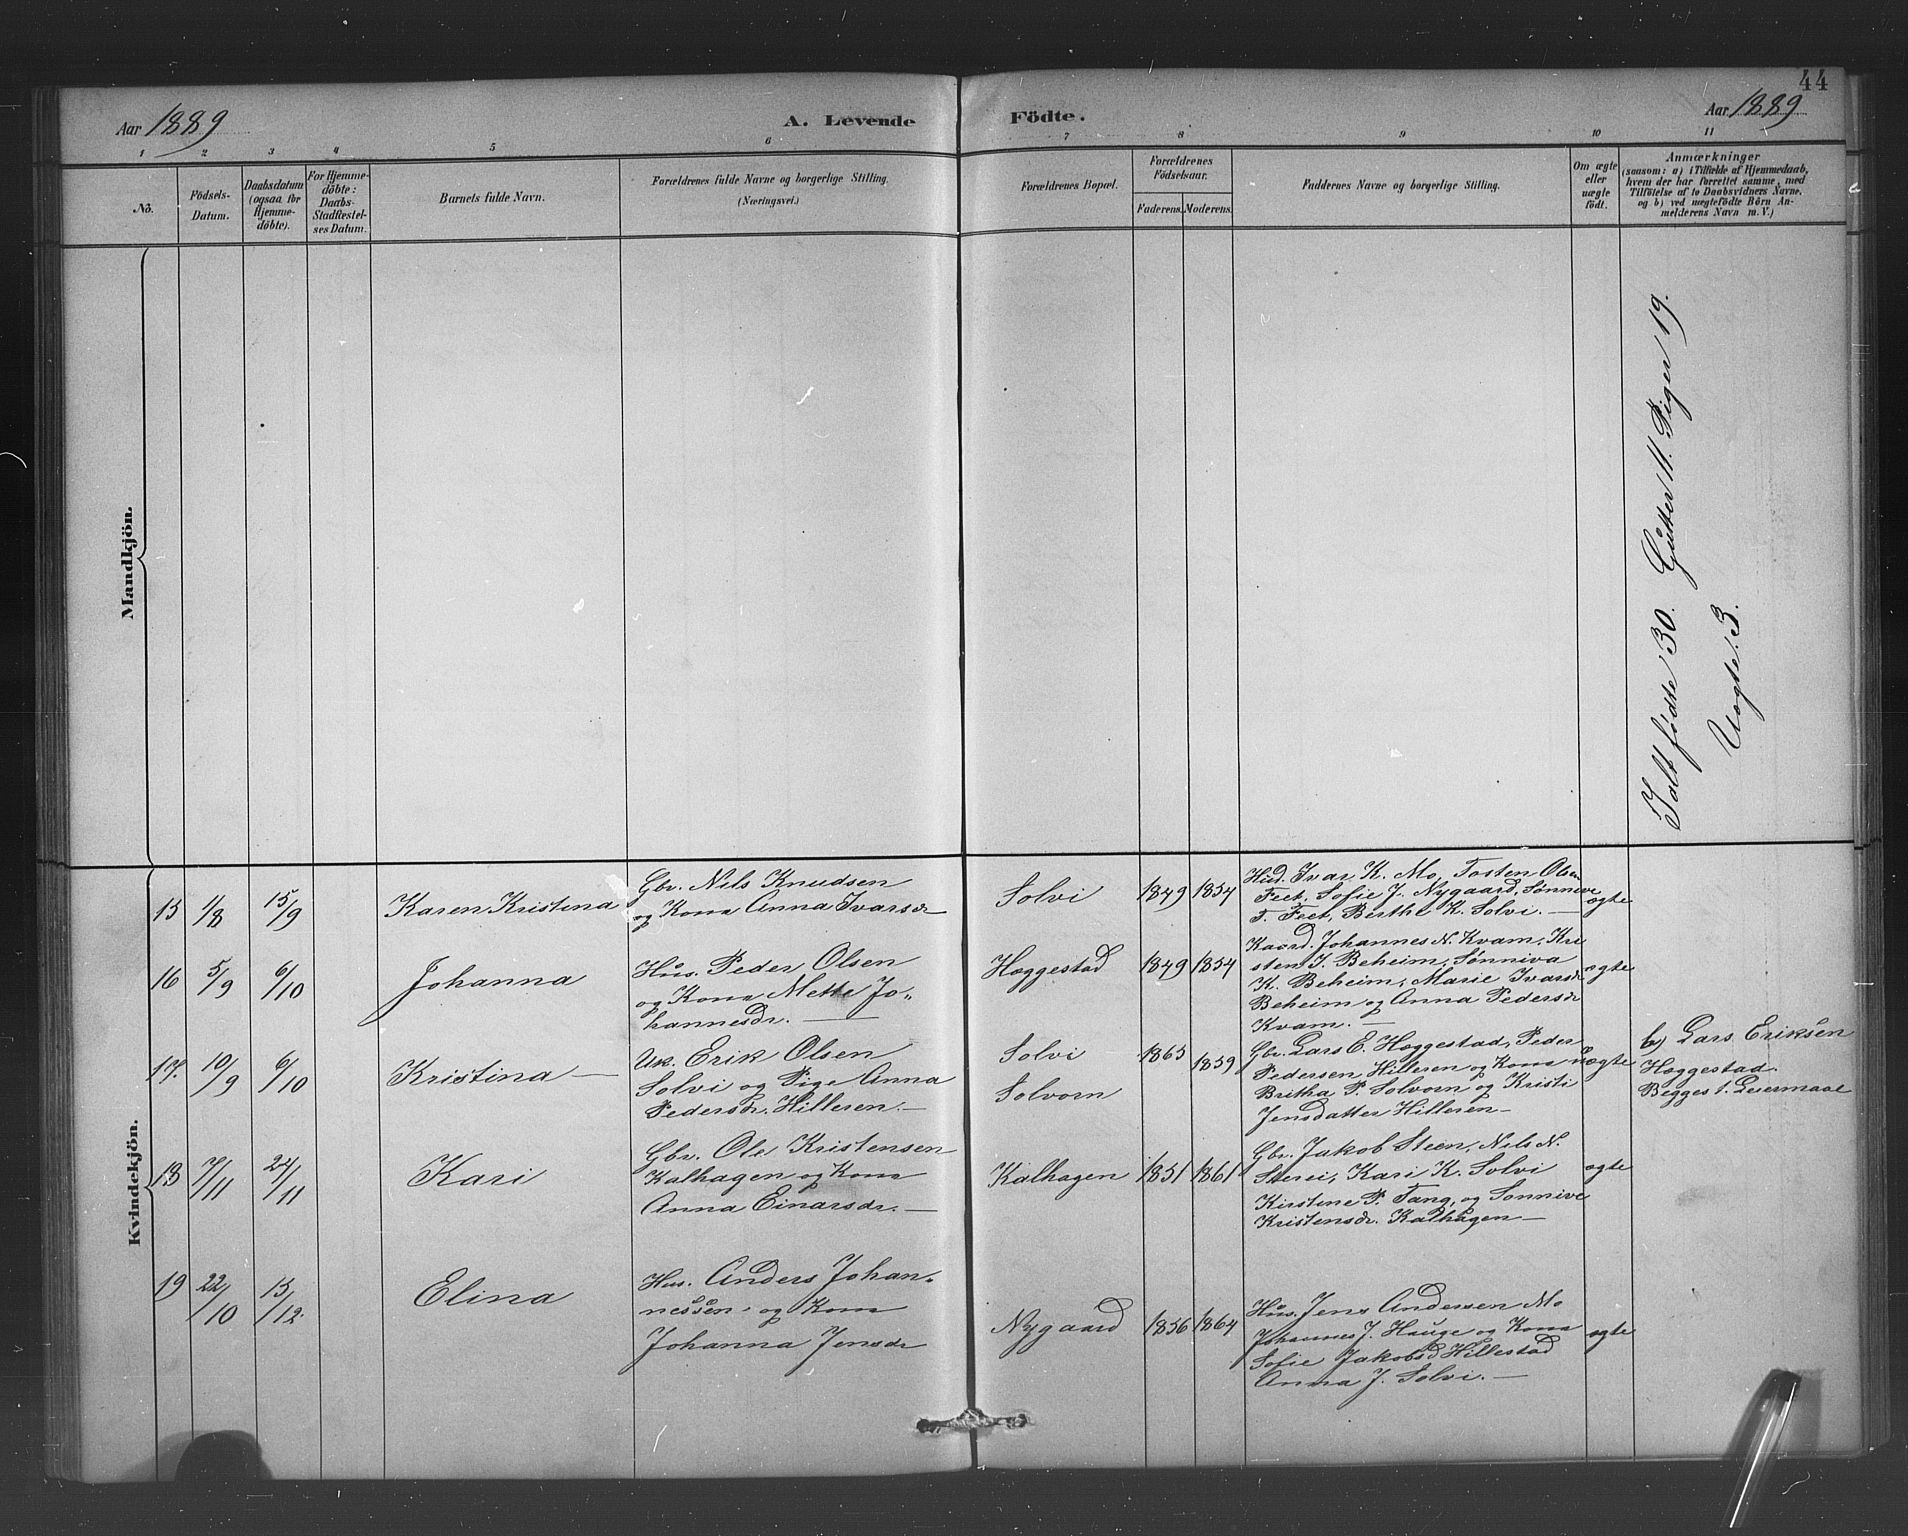 44
Aar 1889
A. Levende Födte.
Aar 1889
1 2 3 4 5 6 7 8 9 10 11
No.
Födsels-
Datum.
Daabsdatum
(ogsaa for
Hjemme-
döbte).
For Hjemme-
döbte:
Daabs-
Stadfæstel-
ses Datum.
Barnets fulde Navn.
Forældrenes fulde Navne og borgerlige Stilling.
(Næringsvei.)
Forældrenes Bopæl.
Forældrenes
Födselsaar.
Faderens. Moderens.
Faddernes Navne og borgerlige Stilling.
Om ægte
eller
uægte
födt.
Anmærkninger
(saasom: a) i Tilfælde af Hjemmedaab,
hvem der har forrettet samme, med
Tilföielse af to Daabsvidners Navne,
og b) ved uægtefödte Börn An-
melderens Navn m. V.)
Mandkjön.
Ialt fødte 30. Gutter 11. Piger 19.
Uægte: 3.
Kvindekjön.
15
1/8
15/9
Karen Kristina
Gbr. Nils Knudsen
og Kona Anna Ivarsdr
Solvi
1849
1854
Hud. Ivar K. Mo, Tosten Olsen
Feet, Sofie J. Nygaard, Sønnive
T. Feet, Berthe K. Solvi. —
ægte
16
5/9
6/10
Johanna
Hus. Peder Olsen
og Kona Mette Jo-
hannesdr. —
Hæggestad
1849
1854
Kaard. Johannes N. Kvam, Kri
sten J. Beheim, Sønniva
K. Beheim, Marie Ivarsdr
Beheim og Anna Pedersdr
Kvam. —
ægte
17.
10/9
6/10
Kristina —
Uk. Erik Olsen
Solvi og Pige Anna
Pedersdr. Hilleren. —
Solvi
Solvorn
1865
1859
Gbr. Lars E. Hæggestad, Peder
Pedersen Hilleren og Kona
Britha P. Solvorn og Kristi
Jensdatter Hilleren —
uægte
b) Lars Eriksen
Hæggestad.
Begges 1. Leiermaal
18
7/11
24/11
Kari
Gbr. Ole Kristensen
Kalhagen og Kona
Anna Einarsdr. —
Kalhagen
1851
1861
Gbr. Jakob Steen, Nils N.
Sterei, Kari K. Solvi
Kirstine P. Tang, og Sonnive
Kristensdr. Kalhagen —
ægte
19
22/10
15/12.
Elina
Hus. Anders Johan-
nessen og Kona
Johanna Jensdr
Nygaard
1856
1864
Hus. Jens Andersen Mo
Johannes J. Hauge og Kona
Sofie Jakobsd Hillestad
Anna J. Solvi. —
ægte